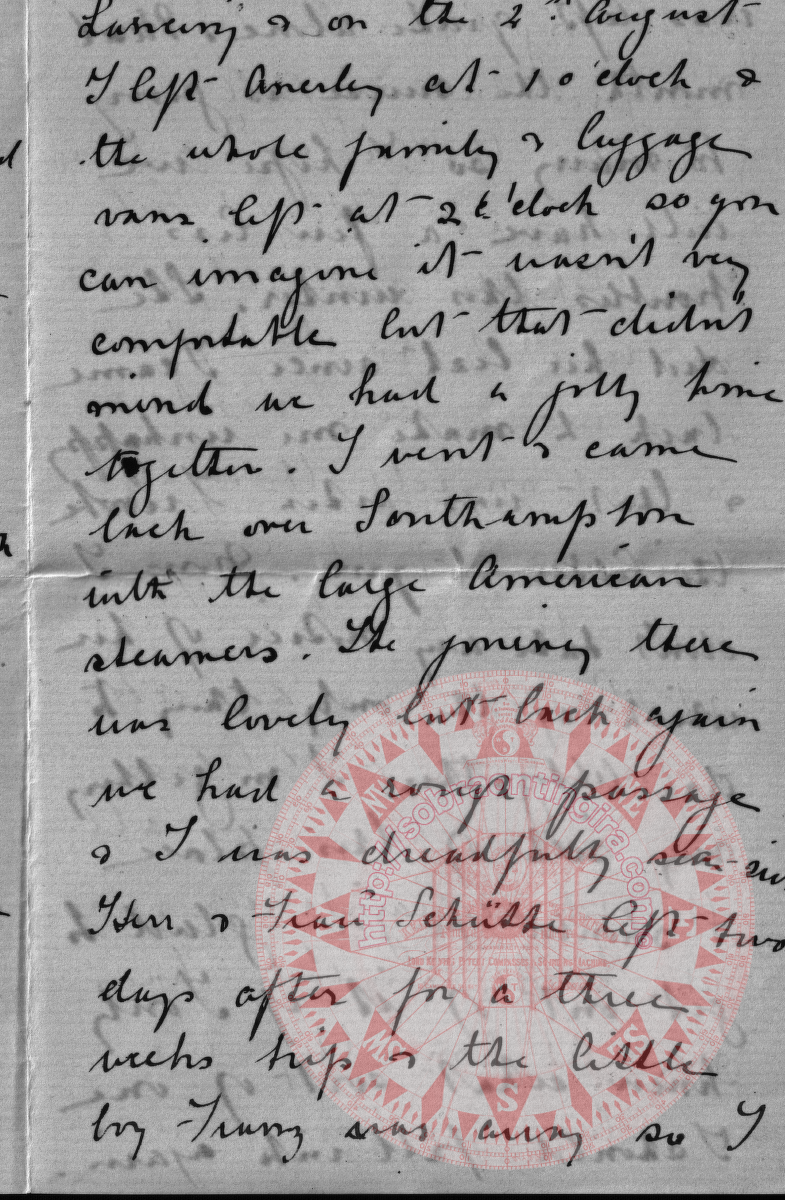 Lancing & on the 2nd August
I left Anerley at 1 o'clock &
the whole family & luggage
vans left at 2 o'clock so you
can imagine it wasn't very
comfortable but that didn't
mind we had a jolly time
together. I went & came
back over Southampton
with the large American
steamers. The joining there
was lovely but back again
we had a rough passage
& I was dreadfully sea-
Herr & Frau Schütte left two
days after for a three
weeks trip & the little
boy Franz was away so I
http://sobragantingira.com